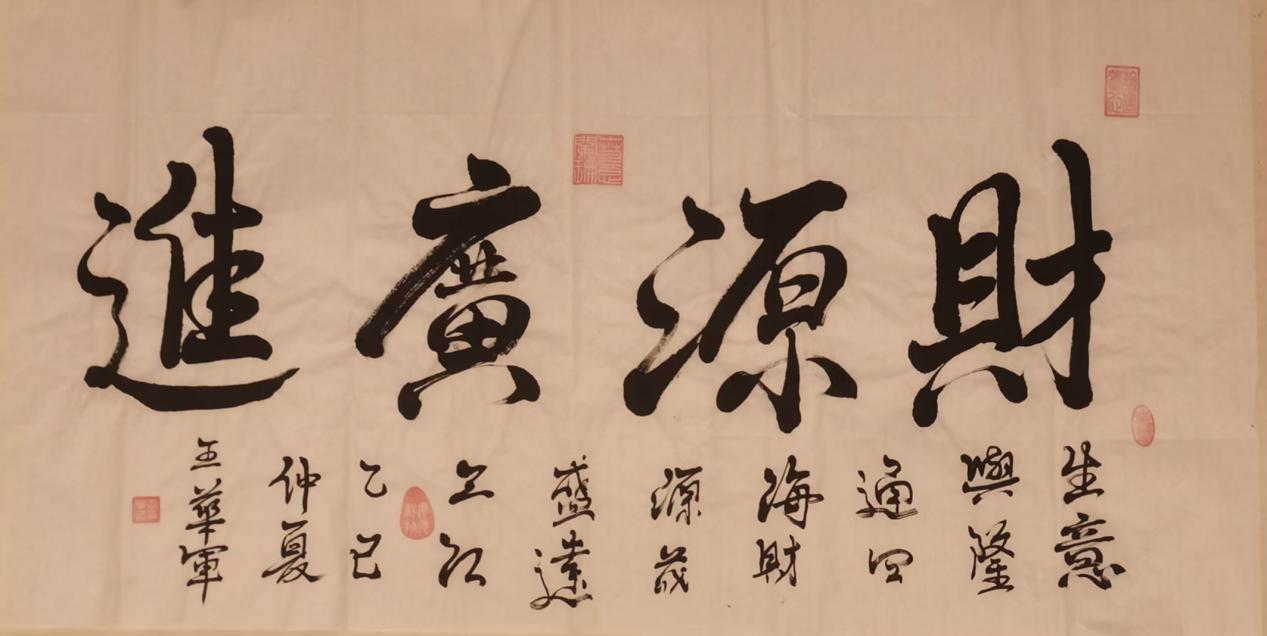 財源廣進
生意
興隆
通四
海財
源茂
盛達
三江
乙巳
仲夏
王華軍